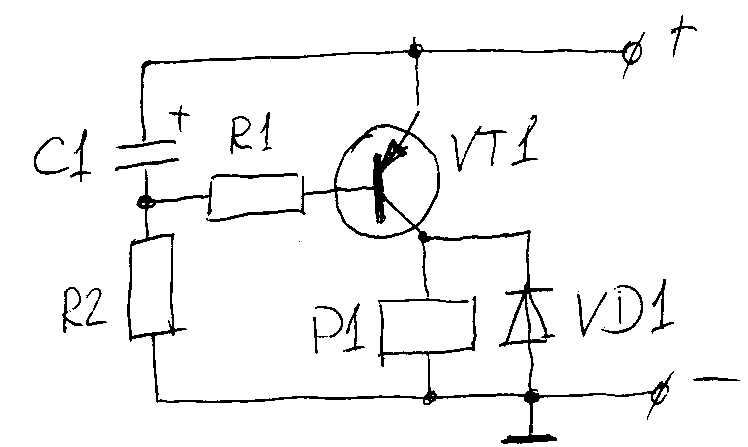 +
C1
+
R1
VT1
R2
P1
VD1
−